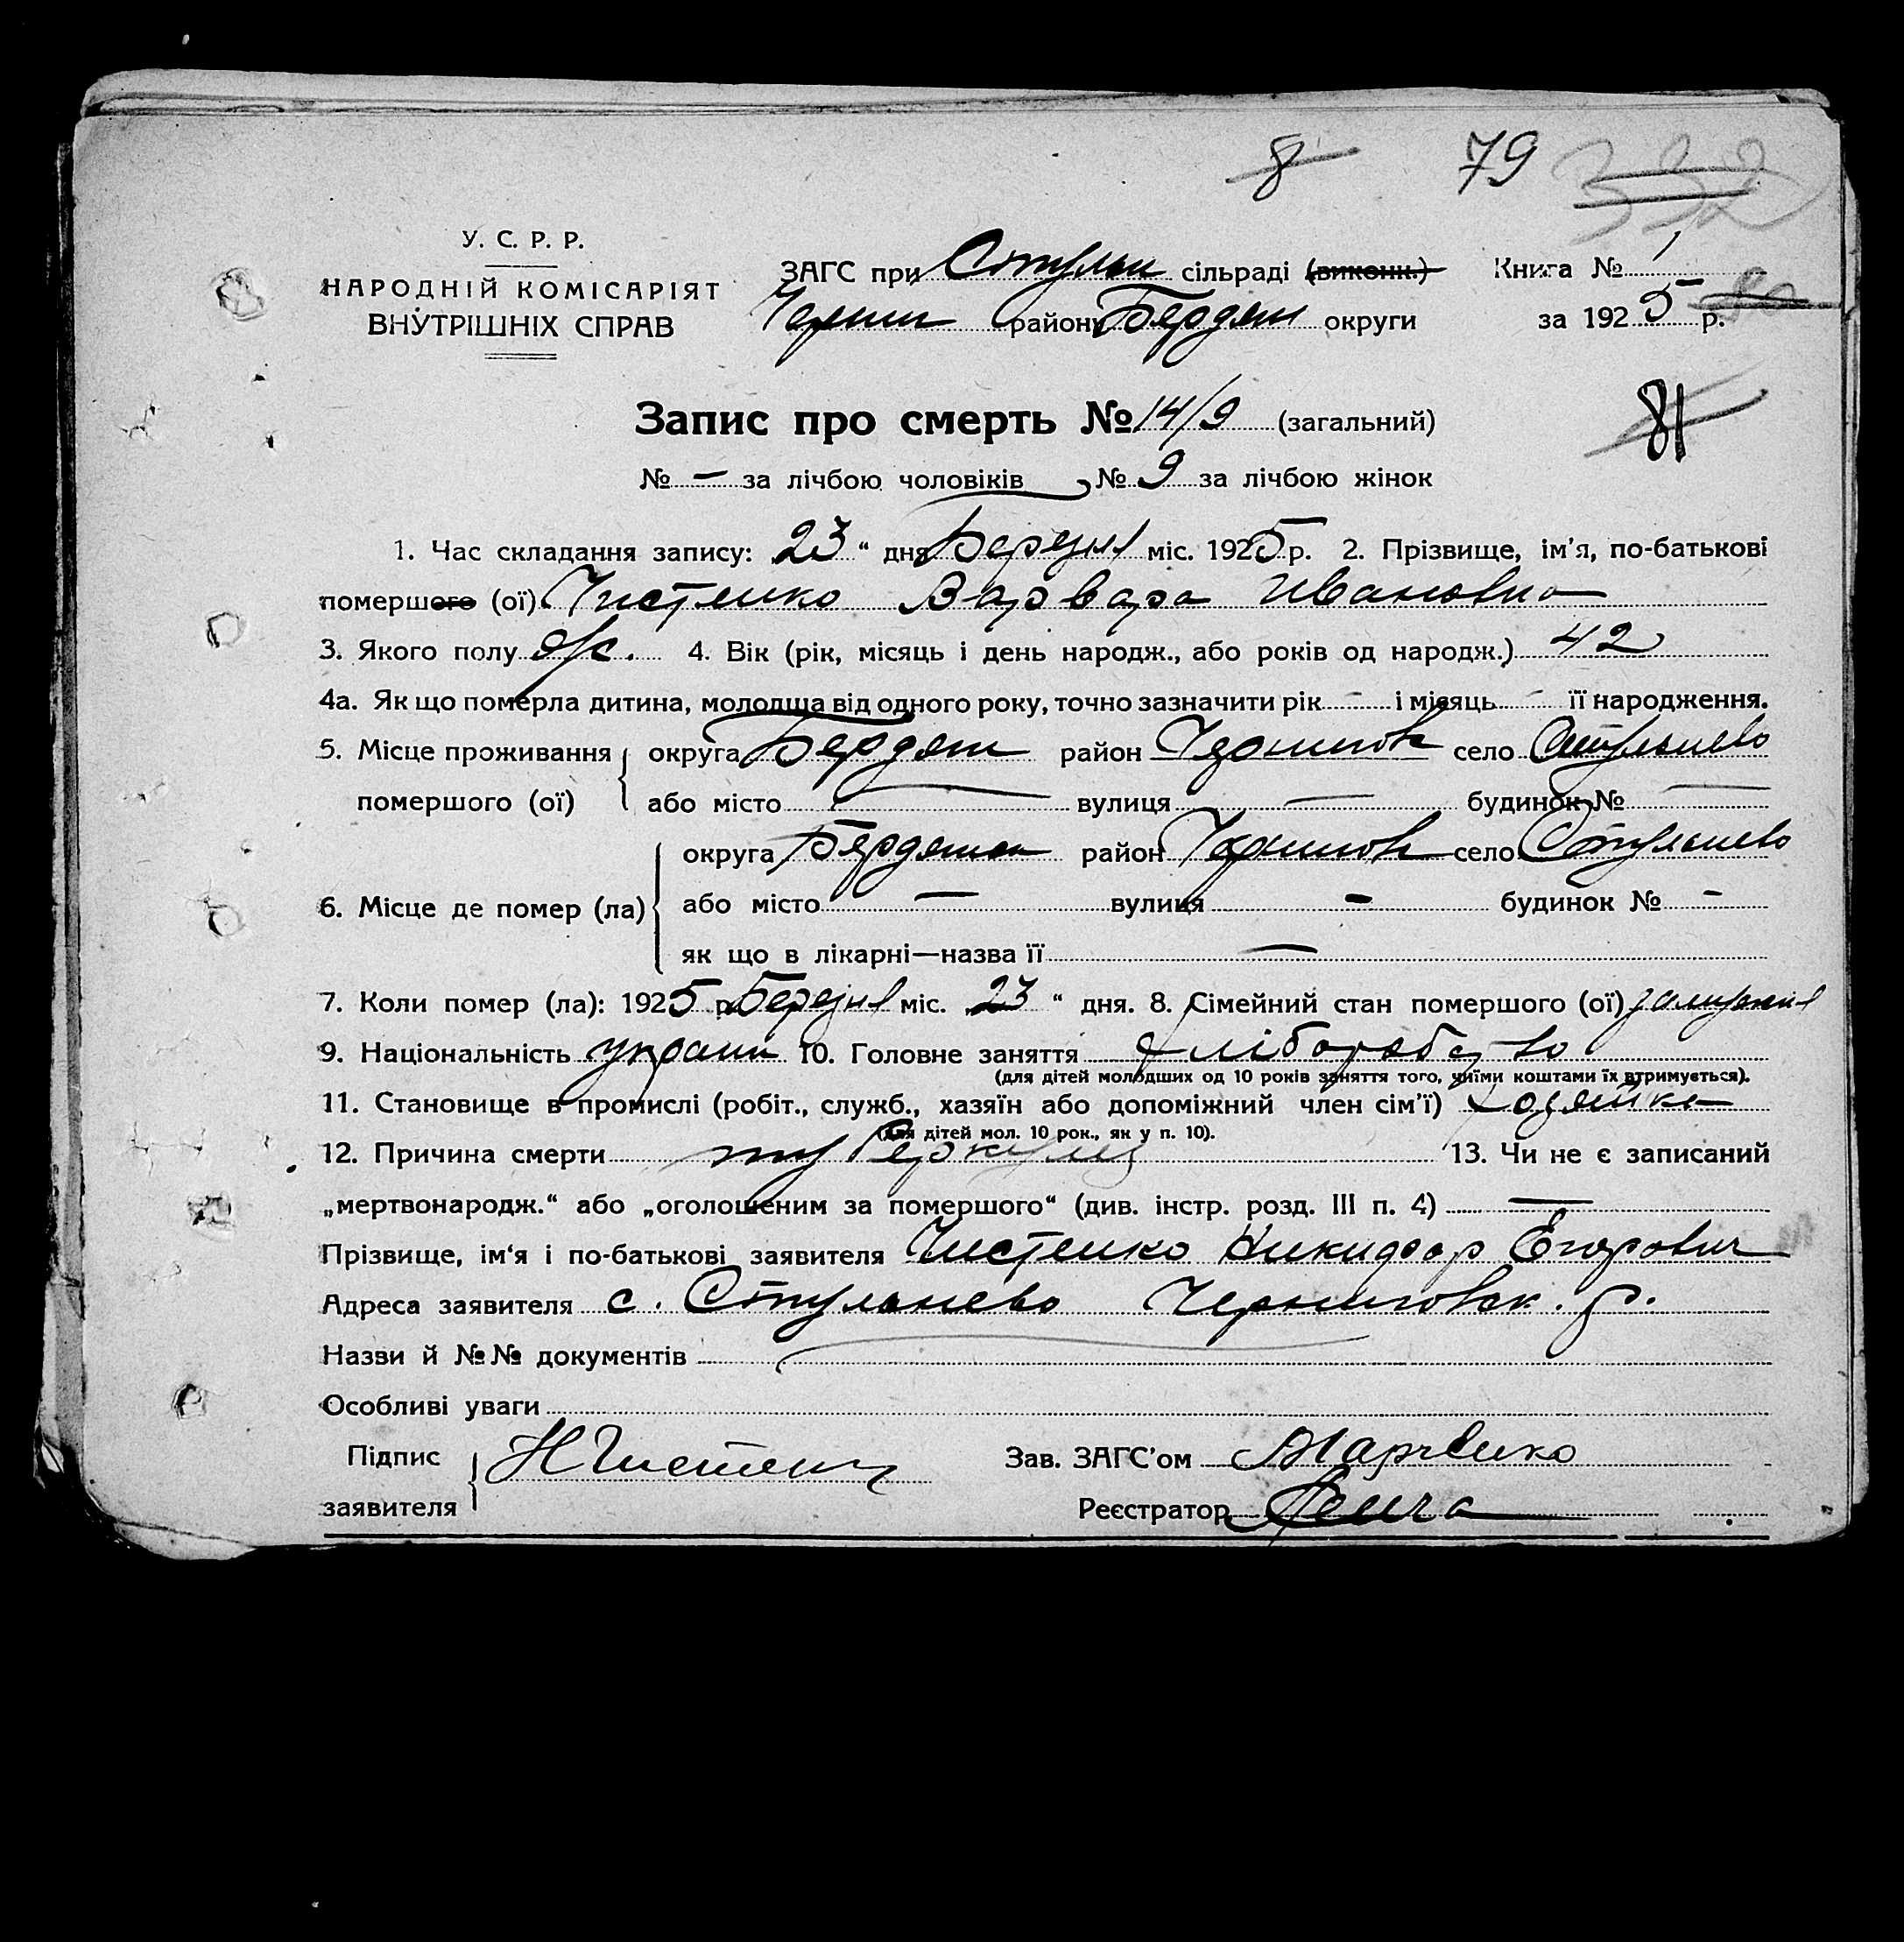 8 79 332
У. С. Р. Р.
НАРОДНІЙ КОМІСАРІЯТ
ВНУТРІШНІХ СПРАВ
ЗАГС при Стульн сільраді (виконк.) Книга № 1
Черниг району Бердян округи за 1925 р.
Запис про смерть № 14/9 (загальний)
81
№ — за лічбою чоловіків № 9 за лічбою жінок
1. Час складання запису: 23 “ дня Березня міс. 1925 р. 2. Прізвище, ім’я, по-батькові
помершого (ої) Чистенко Варвара Ивановна
3. Якого полу ж. 4. Вік (рік, місяць і день народж., або років од народж.) 42
4а. Як що померла дитина, молодша від одного року, точно зазначити рік — і місяць — її народження.
5. Місце проживання округа Бердян район Чернигов село Стульнево
помершого (ої) або місто — вулиця — будинок № —
округа Бердянск район Чернигов село Стульнево
6. Місце де помер (ла) або місто — вулиця — будинок № —
як що в лікарні—назва її —
7. Коли помер (ла): 1925 р. Березня міс. 23 “ дня. 8. Сімейний стан помершого (ої) замужня
9. Національність україн 10. Головне заняття хліборобство
(для дітей молодших од 10 років заняття того, чиїми коштами їх втримується).
11. Становище в промислі (робіт., служб., хазяїн або допоміжний член сім’ї) хозяйка
(для дітей мол. 10 рок., як у п. 10).
12. Причина смерти туберкульоз 13. Чи не є записаний
„мертвонародж.“ або „оголошеним за помершого“ (див. інстр. розд. III п. 4) —
Прізвище, ім‘я і по-батькові заявителя Чистенко Никифор Егорович
Адреса заявителя с. Стульнево Черниговск. р.
Назви й №№ документів
Особливі уваги
Підпис Н Чистенко Зав. ЗАГС’ом Марченко
заявителя Реєстратор